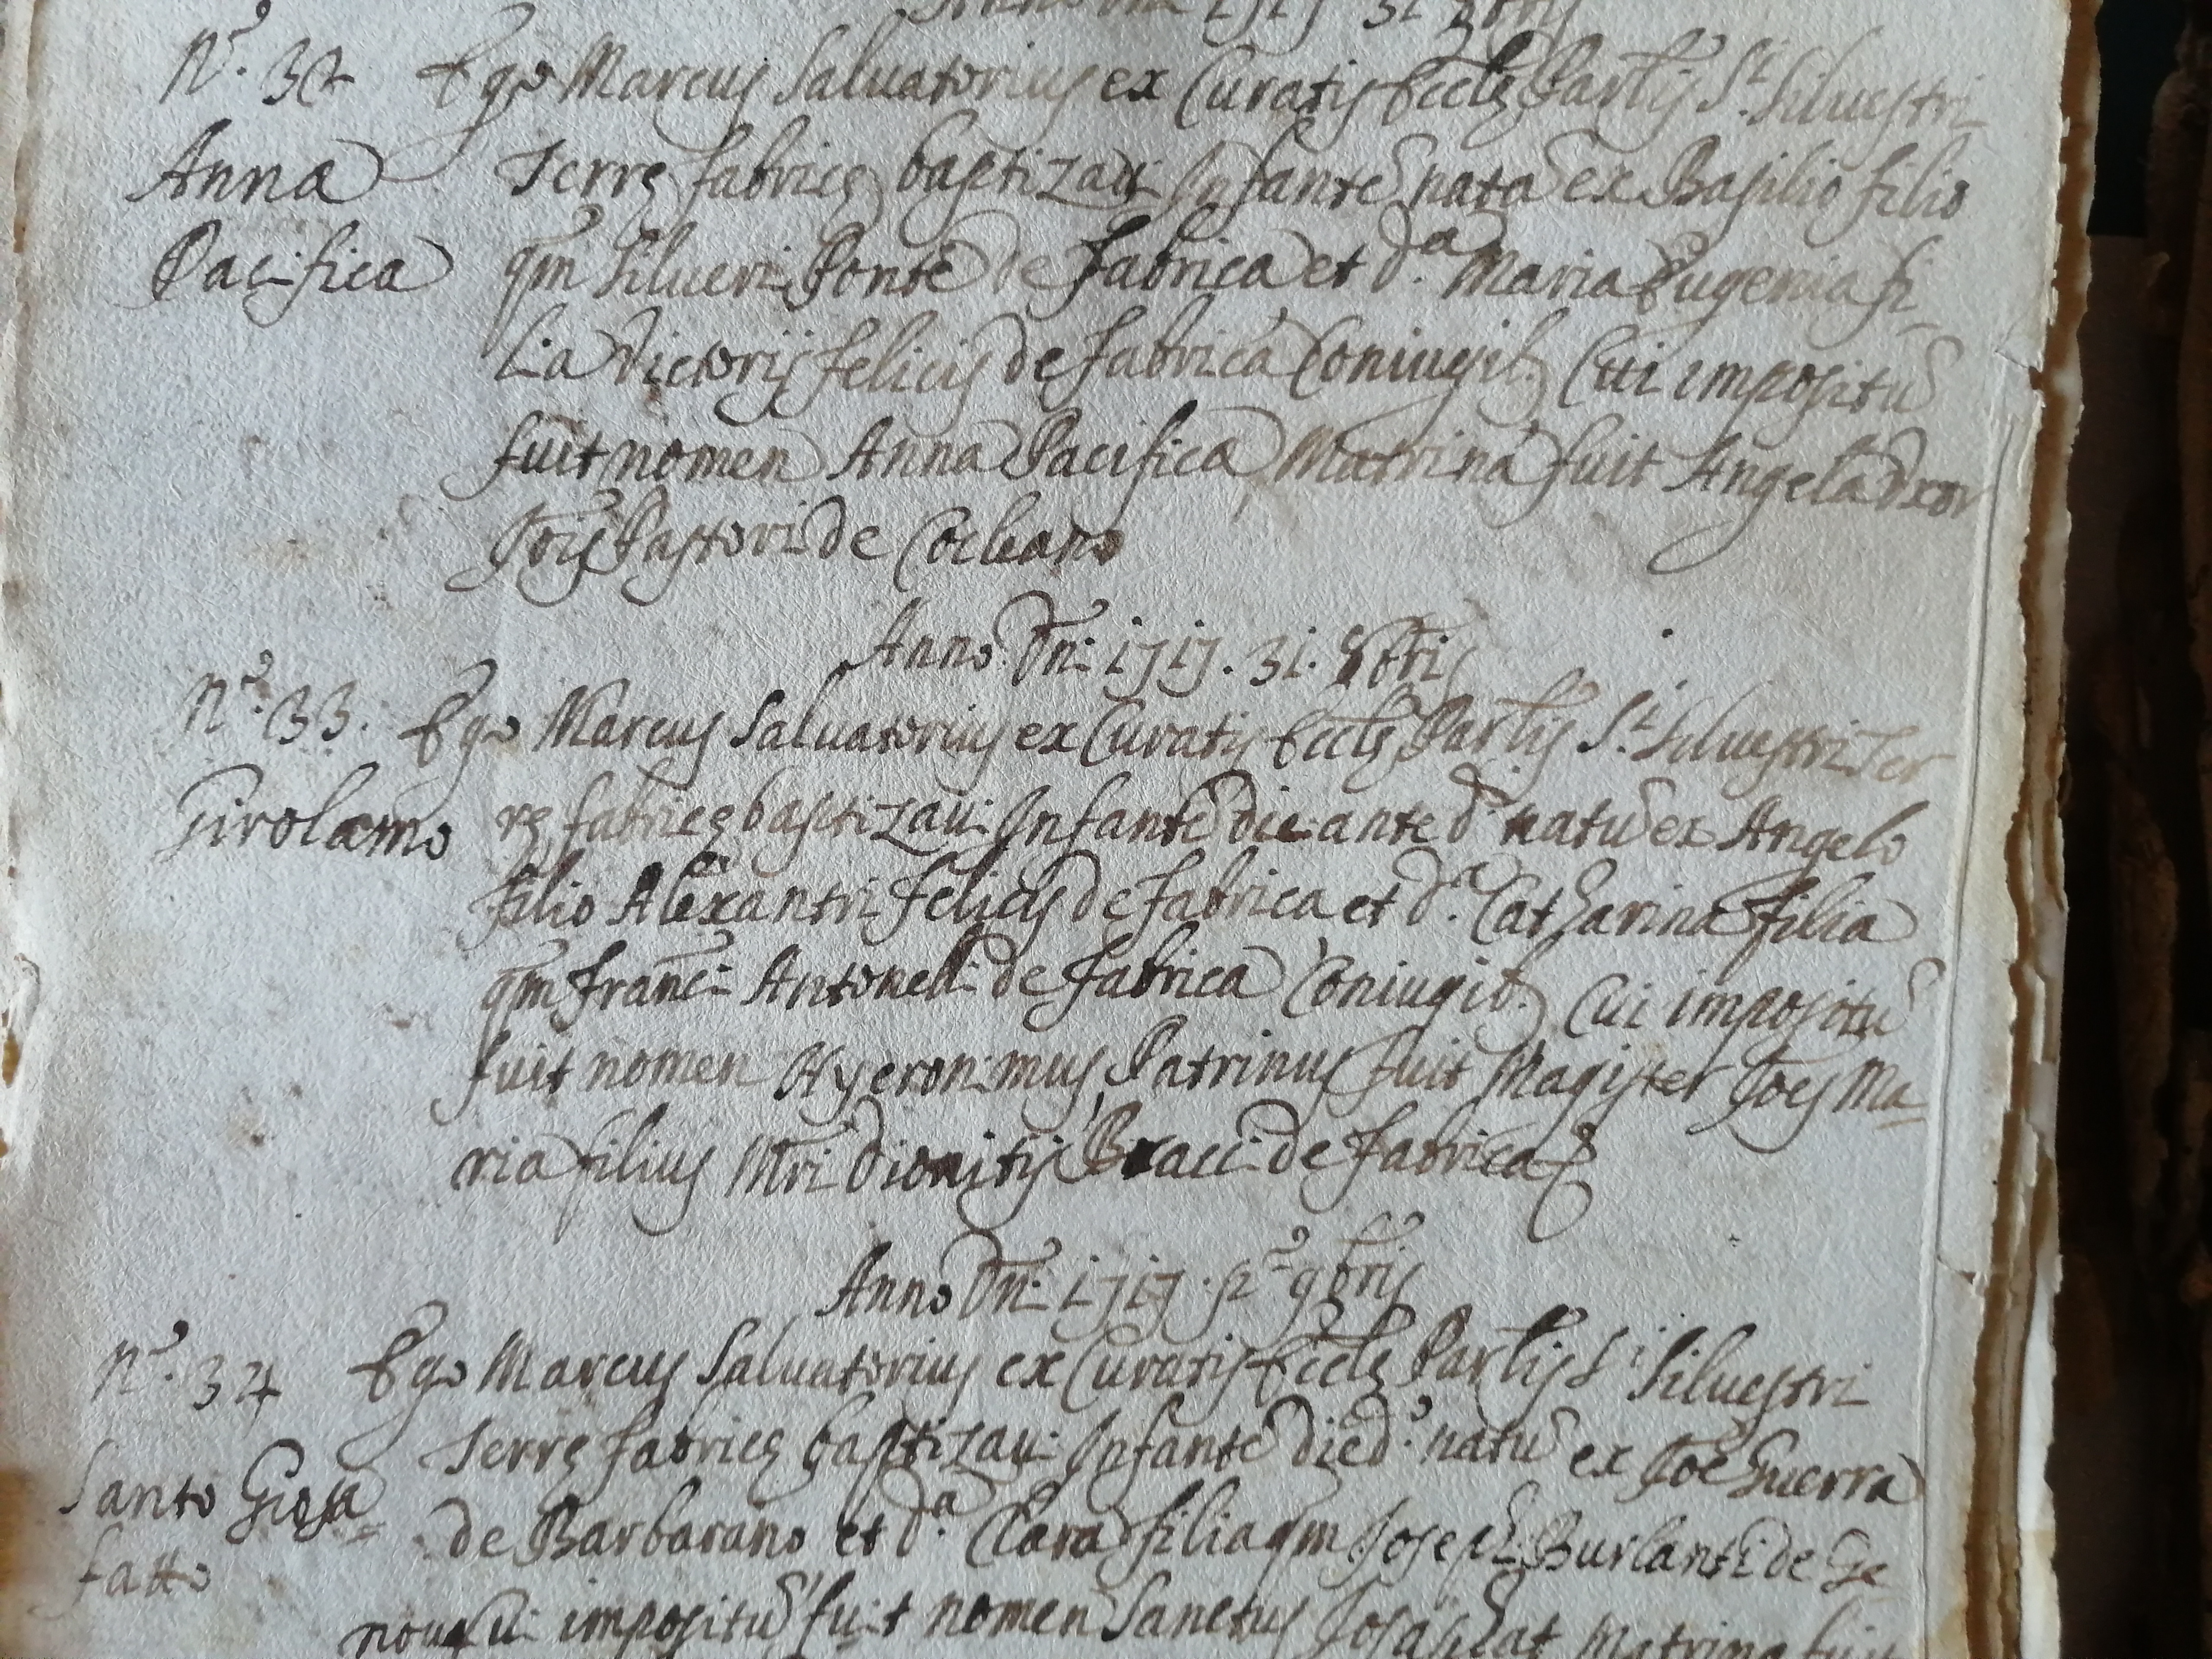 N.º 32 Ego Marcus Saluatorius ex Curatis Eccle Parlis S.ti Siluestri
Anna Terre fabrice baptizaui Infante nata ex Basilio filio
Pacifica qm Silueri Ponte de Fabrica et d.a Maria Eugenia fi-
lia Victorij felicis de fabrica Coniugib. Cui impositu
fuit nomen Anna Pacifica Matrina fuit Angela Vxor
Jois Pastori de Corleano
Anno Dni 1717. 31. 8bris
N.º 33. Ego Marcus Saluatorius ex Curatis Eccle Parlis S.ti Siluestri Ter
Girolamo re fabrice baptizaui Infante die ante d.º natu ex Angelo
filio Alexantri Felicis de Fabrica et d.a Catharina filia
qm Franci Antonelli de Fabrica Coniugib. Cui impositu
fuit nomen Hyeronimus Patrinus fuit Magister Joes Ma-
ria filius Mri Dionitij Bracci de Fabrica
Anno Dni 1717. pº 9bris
N.º 34 Ego Marcus Saluatorius ex Curatis Eccle Parlis S.ti Siluestri
Santo Giosa= Terre fabrice baptizaui Infante die d.º natu ex Joe Guerra
fatto de Barbarano et d.a Clara filia qm Joseph Burlanti de Ge
noua cui impositu fuit nomen Sanctus Josaphat Matrina fuit